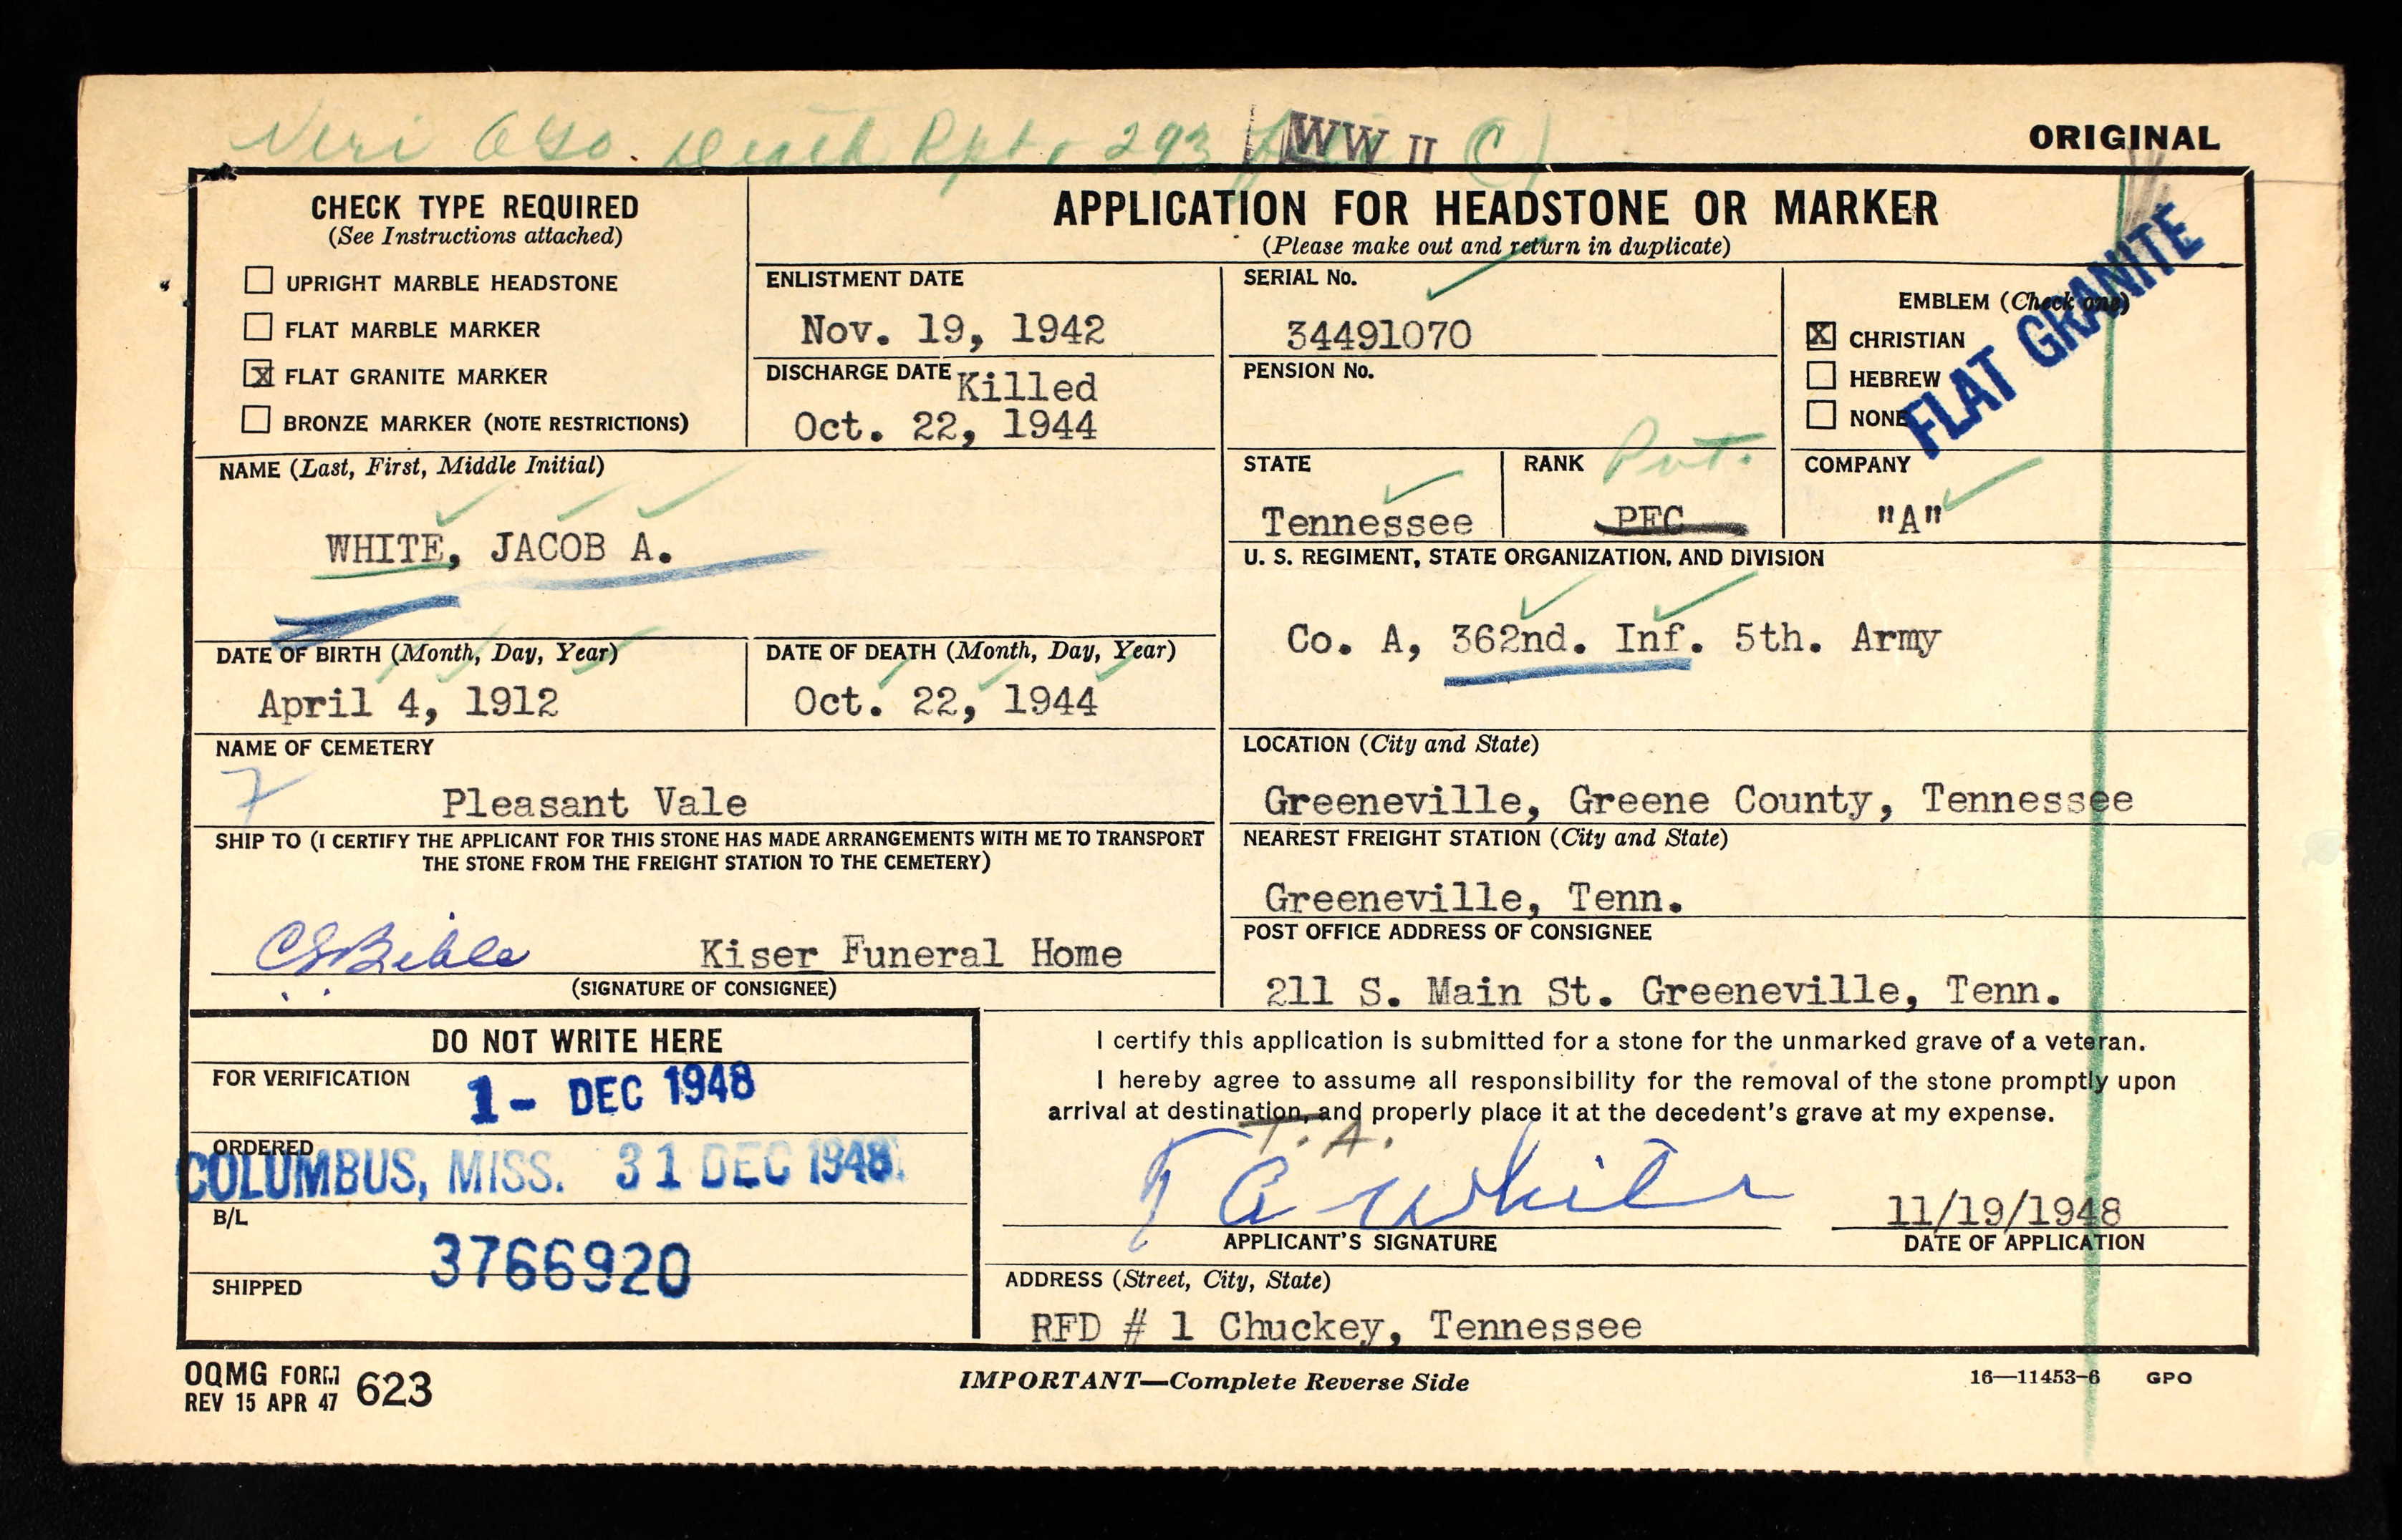 Veri AGO Death Rpt & 293 file C)
WW II
ORIGINAL
CHECK TYPE REQUIRED
(See Instructions attached)
☐ UPRIGHT MARBLE HEADSTONE
☐ FLAT MARBLE MARKER
☒ FLAT GRANITE MARKER
☐ BRONZE MARKER (NOTE RESTRICTIONS)
APPLICATION FOR HEADSTONE OR MARKER
(Please make out and return in duplicate)
ENLISTMENT DATE
Nov. 19, 1942
DISCHARGE DATE Killed
Oct. 22, 1944
SERIAL No.
34491070
PENSION No.
EMBLEM (Check one)
☒ CHRISTIAN
☐ HEBREW
☐ NONE
FLAT GRANITE
NAME (Last, First, Middle Initial)
WHITE, JACOB A.
STATE
Tennessee
RANK Pvt.
PFC
COMPANY
"A"
U. S. REGIMENT, STATE ORGANIZATION, AND DIVISION
Co. A, 362nd. Inf. 5th. Army
DATE OF BIRTH (Month, Day, Year)
April 4, 1912
DATE OF DEATH (Month, Day, Year)
Oct. 22, 1944
NAME OF CEMETERY
7
Pleasant Vale
LOCATION (City and State)
Greeneville, Greene County, Tennessee
SHIP TO (I CERTIFY THE APPLICANT FOR THIS STONE HAS MADE ARRANGEMENTS WITH ME TO TRANSPORT
THE STONE FROM THE FREIGHT STATION TO THE CEMETERY)
NEAREST FREIGHT STATION (City and State)
Greeneville, Tenn.
CS Bible Kiser Funeral Home
(SIGNATURE OF CONSIGNEE)
POST OFFICE ADDRESS OF CONSIGNEE
211 S. Main St. Greeneville, Tenn.
DO NOT WRITE HERE
FOR VERIFICATION
1- DEC 1948
ORDERED
COLUMBUS, MISS. 31 DEC 1948
B/L
3766920
SHIPPED
I certify this application is submitted for a stone for the unmarked grave of a veteran.
I hereby agree to assume all responsibility for the removal of the stone promptly upon
arrival at destination, and properly place it at the decedent's grave at my expense.
T. A.
T A White
APPLICANT'S SIGNATURE
11/19/1948
DATE OF APPLICATION
ADDRESS (Street, City, State)
RFD # 1 Chuckey, Tennessee
OQMG FORM 623
REV 15 APR 47
IMPORTANT—Complete Reverse Side
16—11453-6 GPO